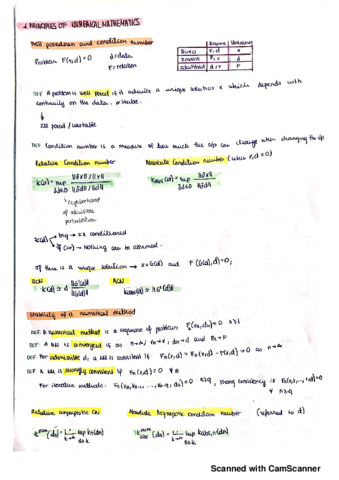 2. PRINCIPLES OF NUMERICAL MATHEMATICS
Well posedness and condition number
Problem F(x,d)=0 d=data
F=relation
Known Unknown
Direct F, d x
Inverse F, x d
Identified d, x F
DEF A problem is well posed if it admits a unique solution x which depends with
continuity on the data.
↓
Ill posed / unstable
DEF Condition number is a measure of how much the o/p can change when changing the i/p
Relative Condition number Absolute Condition number (when x,d=0)
K(d)= sup ||δx||/||x|| / ||δd||/||d||
δd∈D
Kabs(d)= sup ||δx|| / ||δd||
δd∈D
↳ neighborhood
of admissible
perturbation
K(d) big → ill conditioned
if low → Nothing can be assumed.
If there is a unique solution → x=G(d) and F(G(d),d)=0;
RCN ACN
K(d) ≃ ||G'(d)|| ||d|| / ||G(d)||
Kabs(d) ≃ ||G'(d)||
Stability of a numerical method
DEF A numerical method is a sequence of problems Fn(xn,dn)=0 n≥1
DEF: A NM is convergent if as n→∞, xn→x, dn→d and Fn→F
DEF For admissible d, a NM is consistent if Fn(x,d)= Fn(x,d)-F(x,d)→0 as n→∞
DEF A NM is strongly consistent if Fn(x,d)=0 ∀n
For iterative methods: Fn(xn,xn-1,...,xn-q,dn)=0 n≥q, strong consistency is Fn(x,x,...,x,d)=0
∀ n≥q
Relative asymptotic CN Absolute Asymptotic condition number (referred to d)
K^num(dn)= Lim k→∞ sup n≥k Kn(dn)
K^num abs(dn)= Lim k→∞ sup n≥k Kabs,n(dn)
Scanned with CamScanner